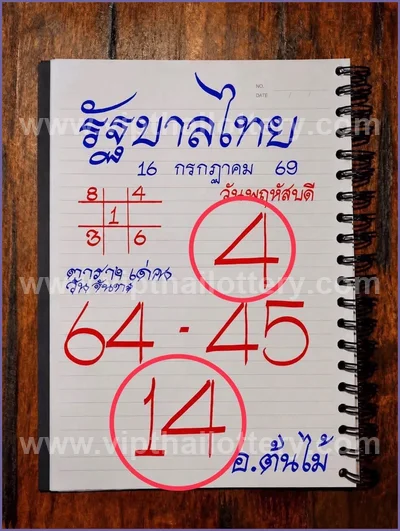 NO.
DATE
รัฐบาลไทย
www.vipthailottery.com
16 กรกฎาคม 69
วันพฤหัสบดี
8 4
1
3 6
4
ตาราง เด่น
วันจันทร์
www.vipthailottery.com
64 - 45
14
www.vipthailottery.com
อ.ต้นไม้